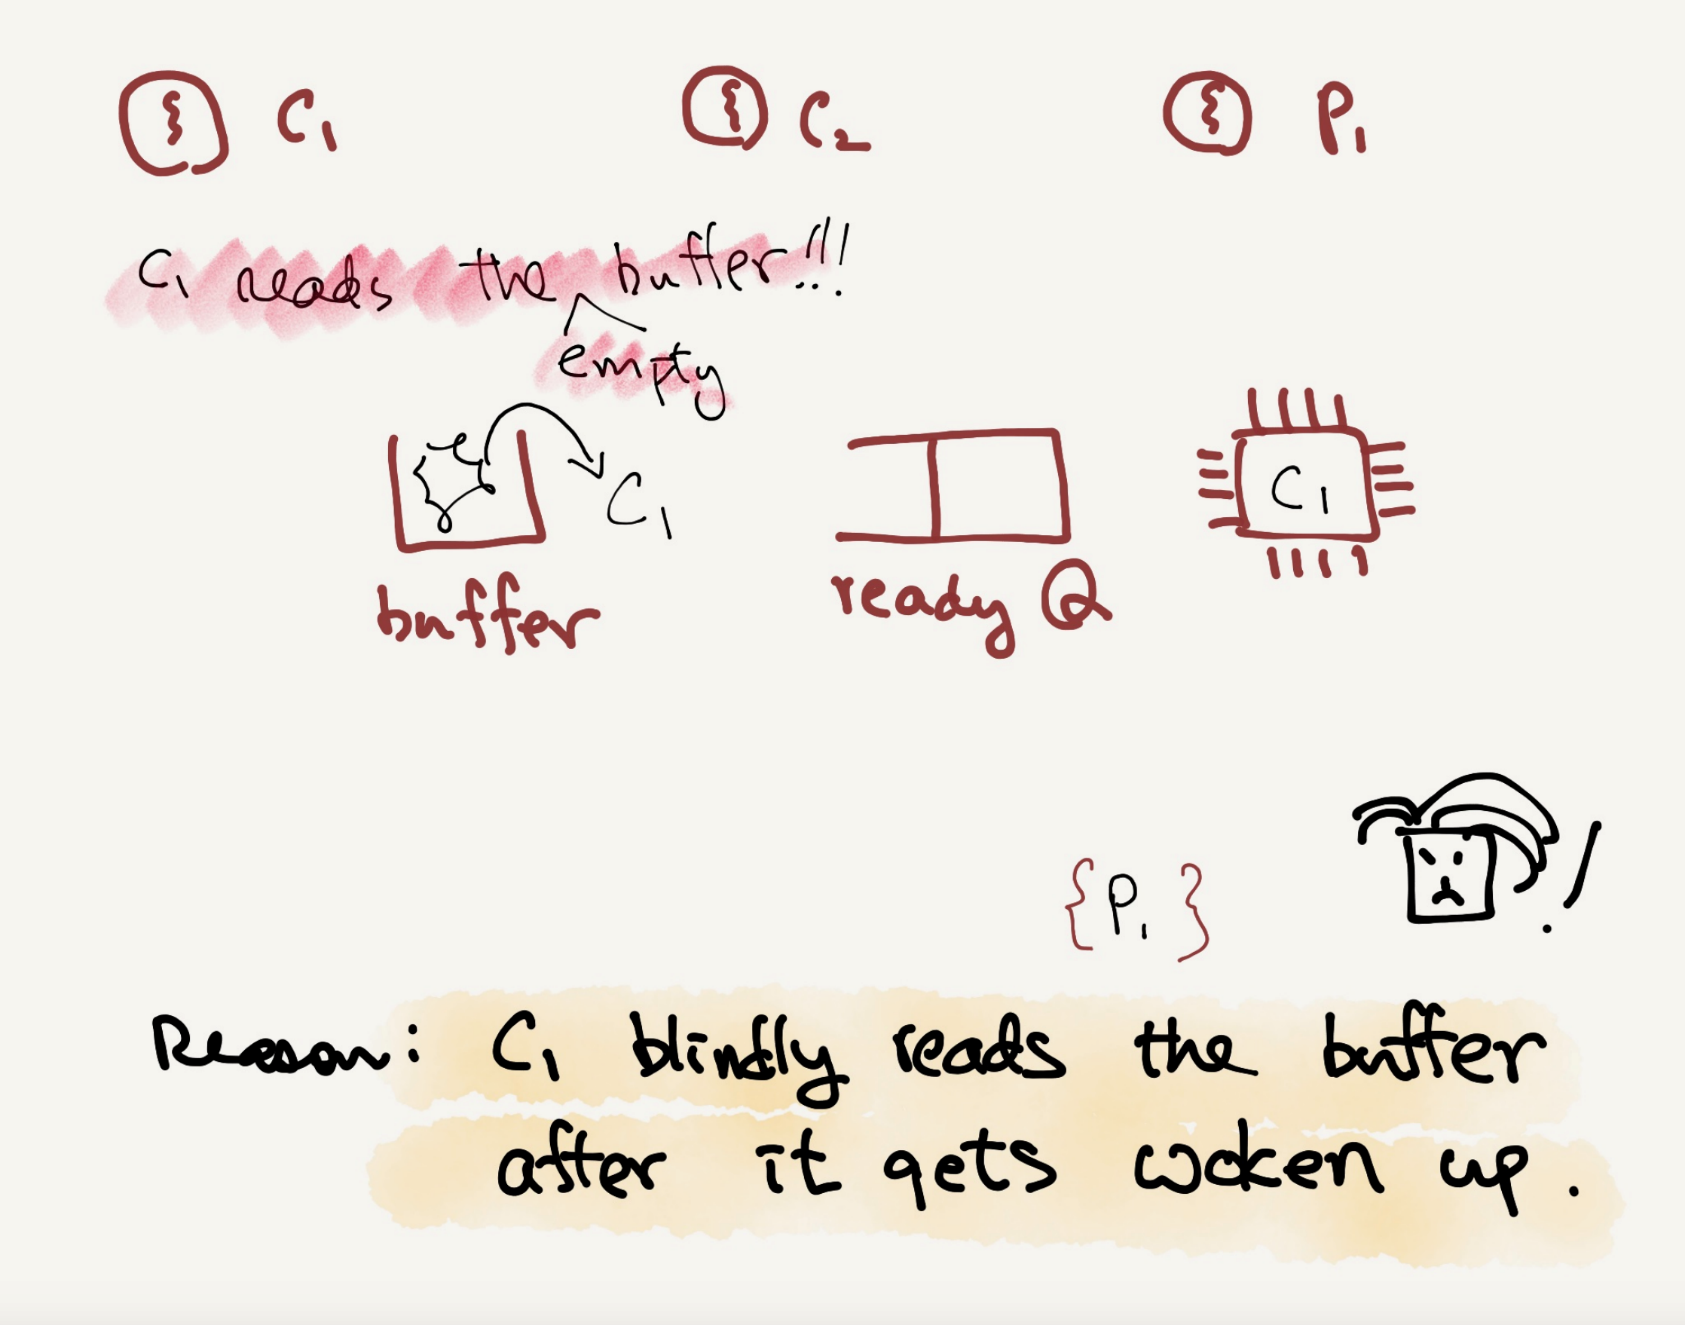 C1 C2 P1
C1 reads the buffer!!!
empty
C1 C1
buffer ready Q
{P1} !
Reason: C1 blindly reads the buffer
after it gets woken up.